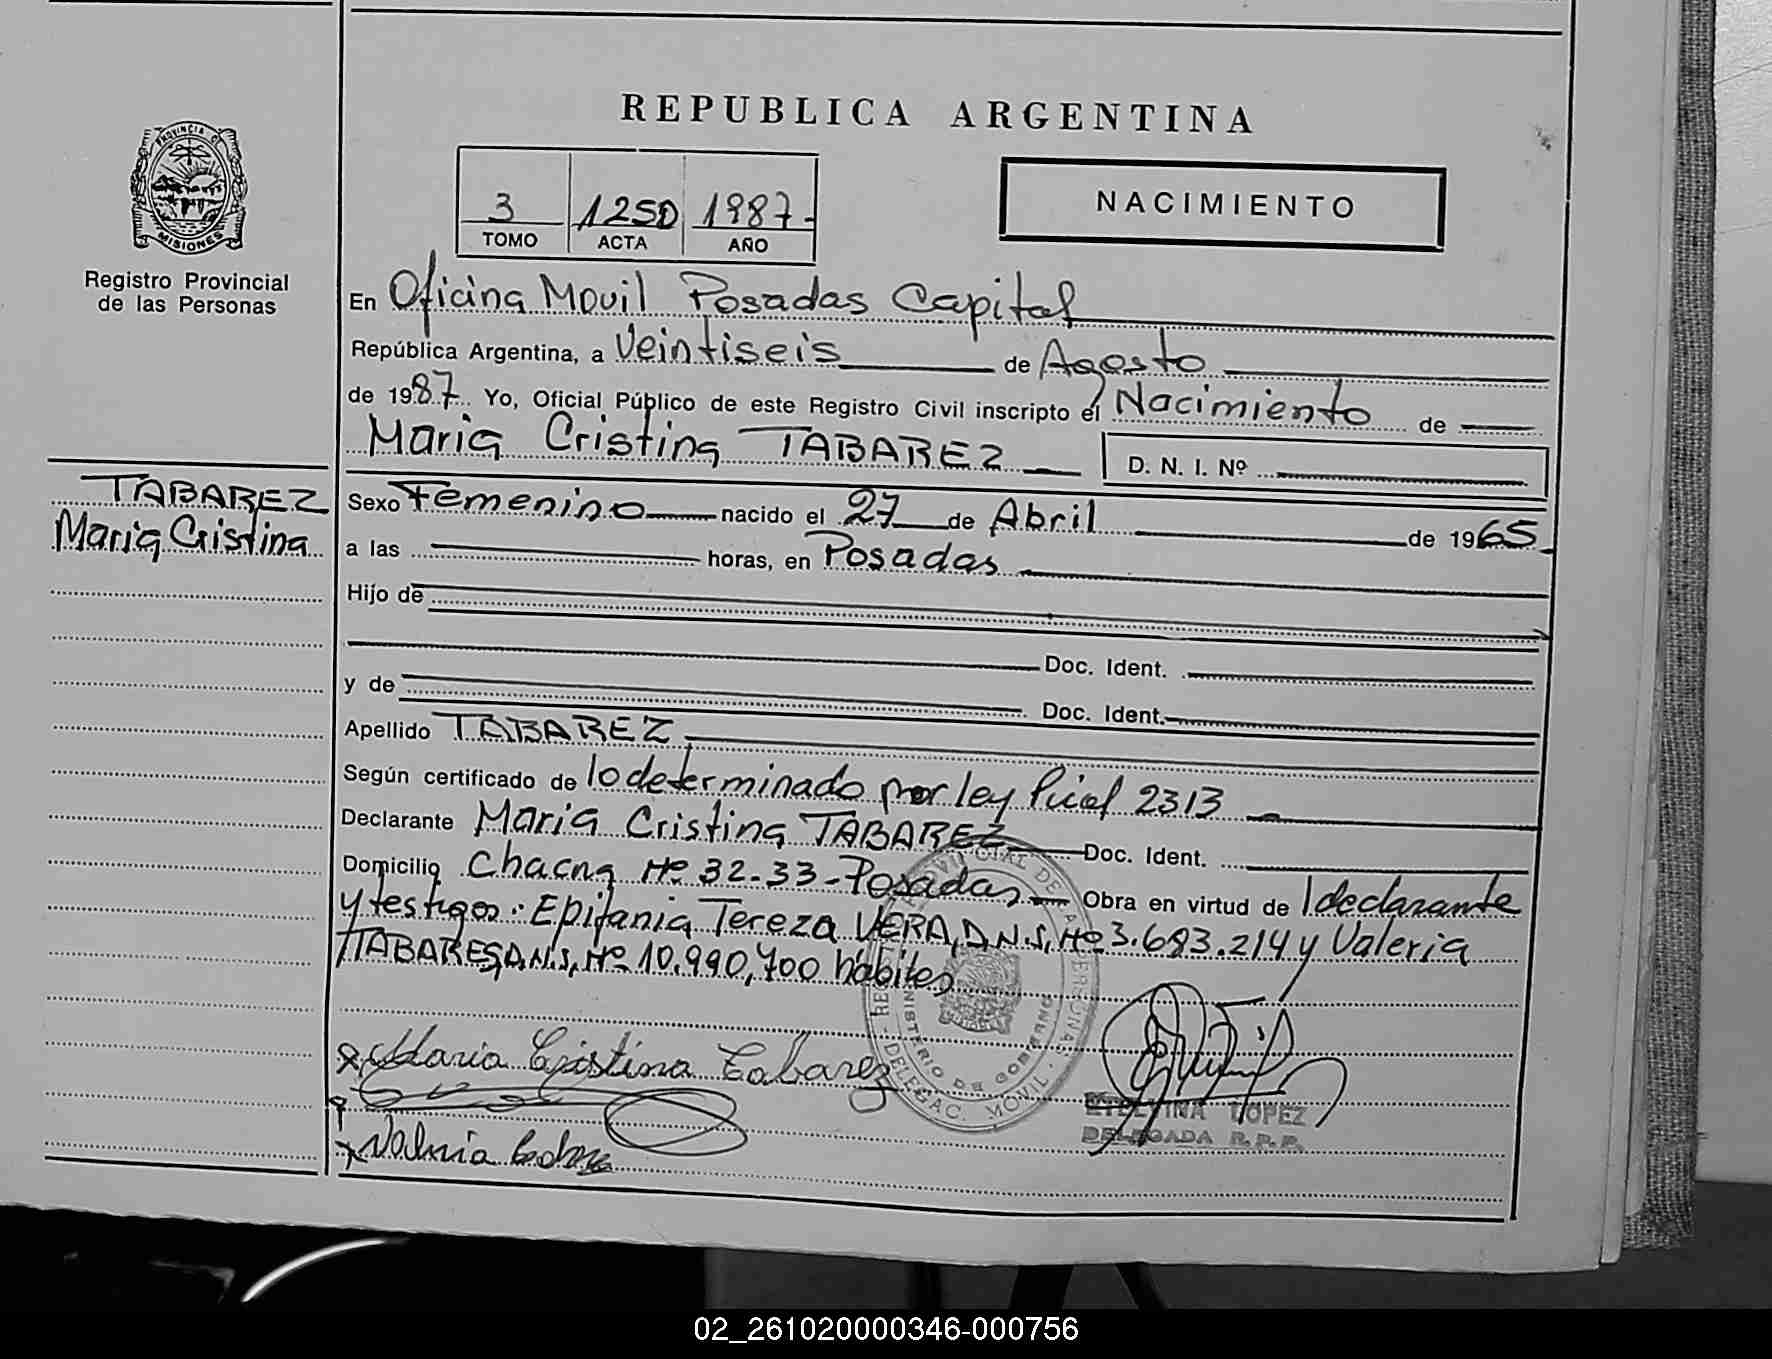 REPUBLICA ARGENTINA
PROVINCIA D
MISIONES
Registro Provincial
de las Personas
3 1250 1987-
TOMO ACTA AÑO
NACIMIENTO
En Oficina Movil Posadas Capital
República Argentina, a Veintiseis de Agosto
de 1987. Yo, Oficial Público de este Registro Civil inscripto el Nacimiento de
Maria Cristina TABAREZ
D. N. I. Nº
TABAREZ
Maria Cristina
Sexo Femenino nacido el 27 de Abril de 1965
a las horas, en Posadas
Hijo de
Doc. Ident.
y de Doc. Ident.
Apellido TABAREZ
Según certificado de lo determinado por ley Pcial 2313
Declarante Maria Cristina TABAREZ Doc. Ident.
Domicilio Chacna Nº 32-33-Posadas Obra en virtud de l declarante
y testigos: Epifania Tereza VERA, D.N.I, Nº 3.683.214 y Valeria
TABARES, D.N.I, Nº 10.990,400 hábiles
REGISTRO PROVINCIAL DE LAS PERSONAS
MINISTERIO DE GOBIERNO
DELEGAC. MOVIL
x Maria Cristina Tabarez
ETELVINA LOPEZ
DELEGADA R.P.P.
x Valeria
02_261020000346-000756